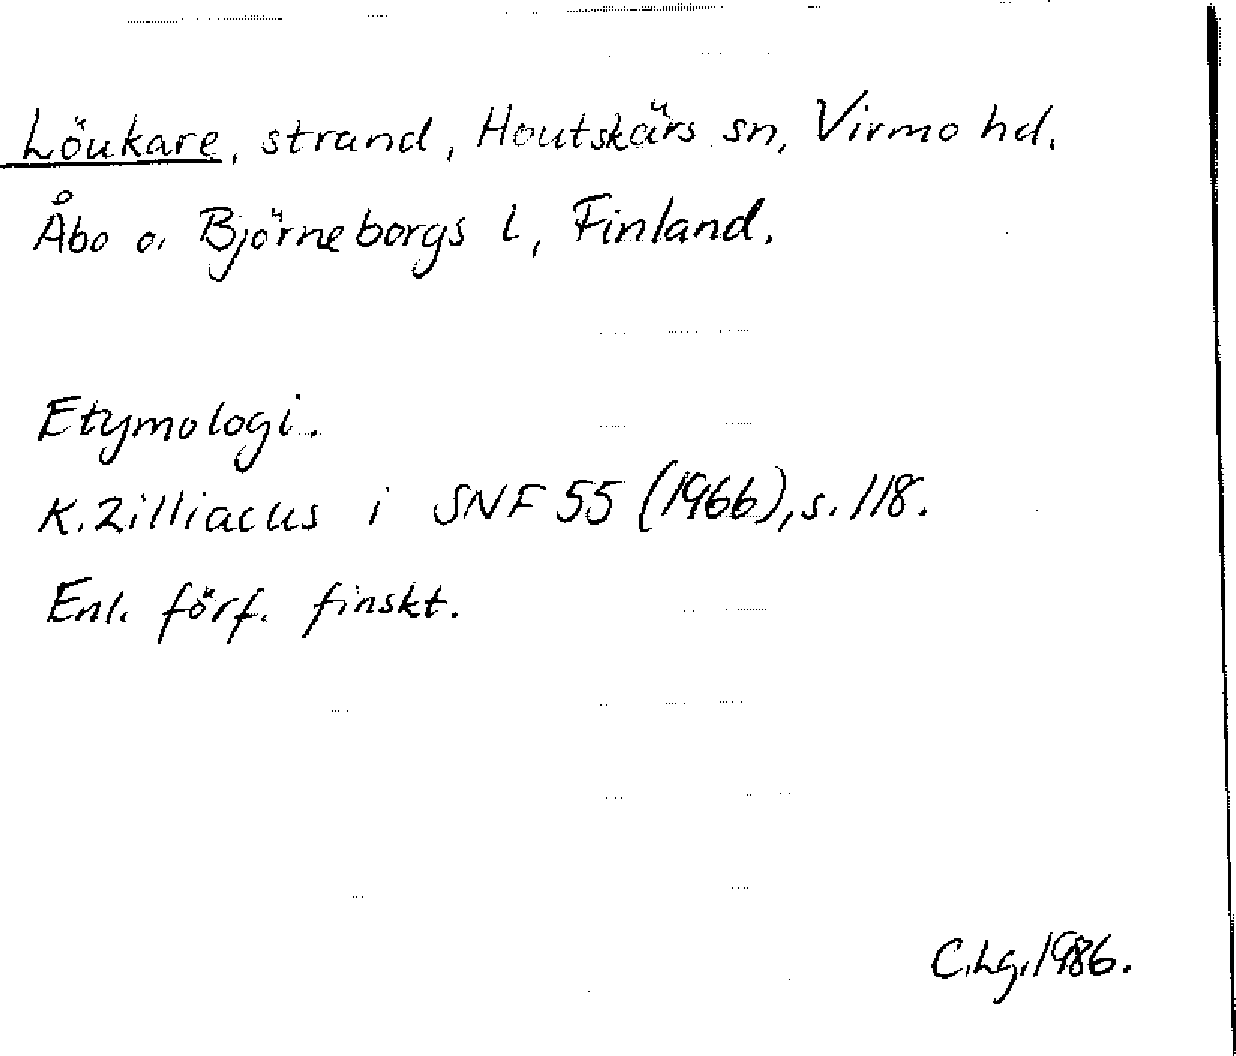 Löukare, strand, Houtskärs sn, Virmo hd.
Åbo o. Björneborgs l, Finland.
Etymologi.
K. Zilliacus i SNF 55 (1966), s. 118.
Enl. förf. finskt.
C.Lg. 1986.